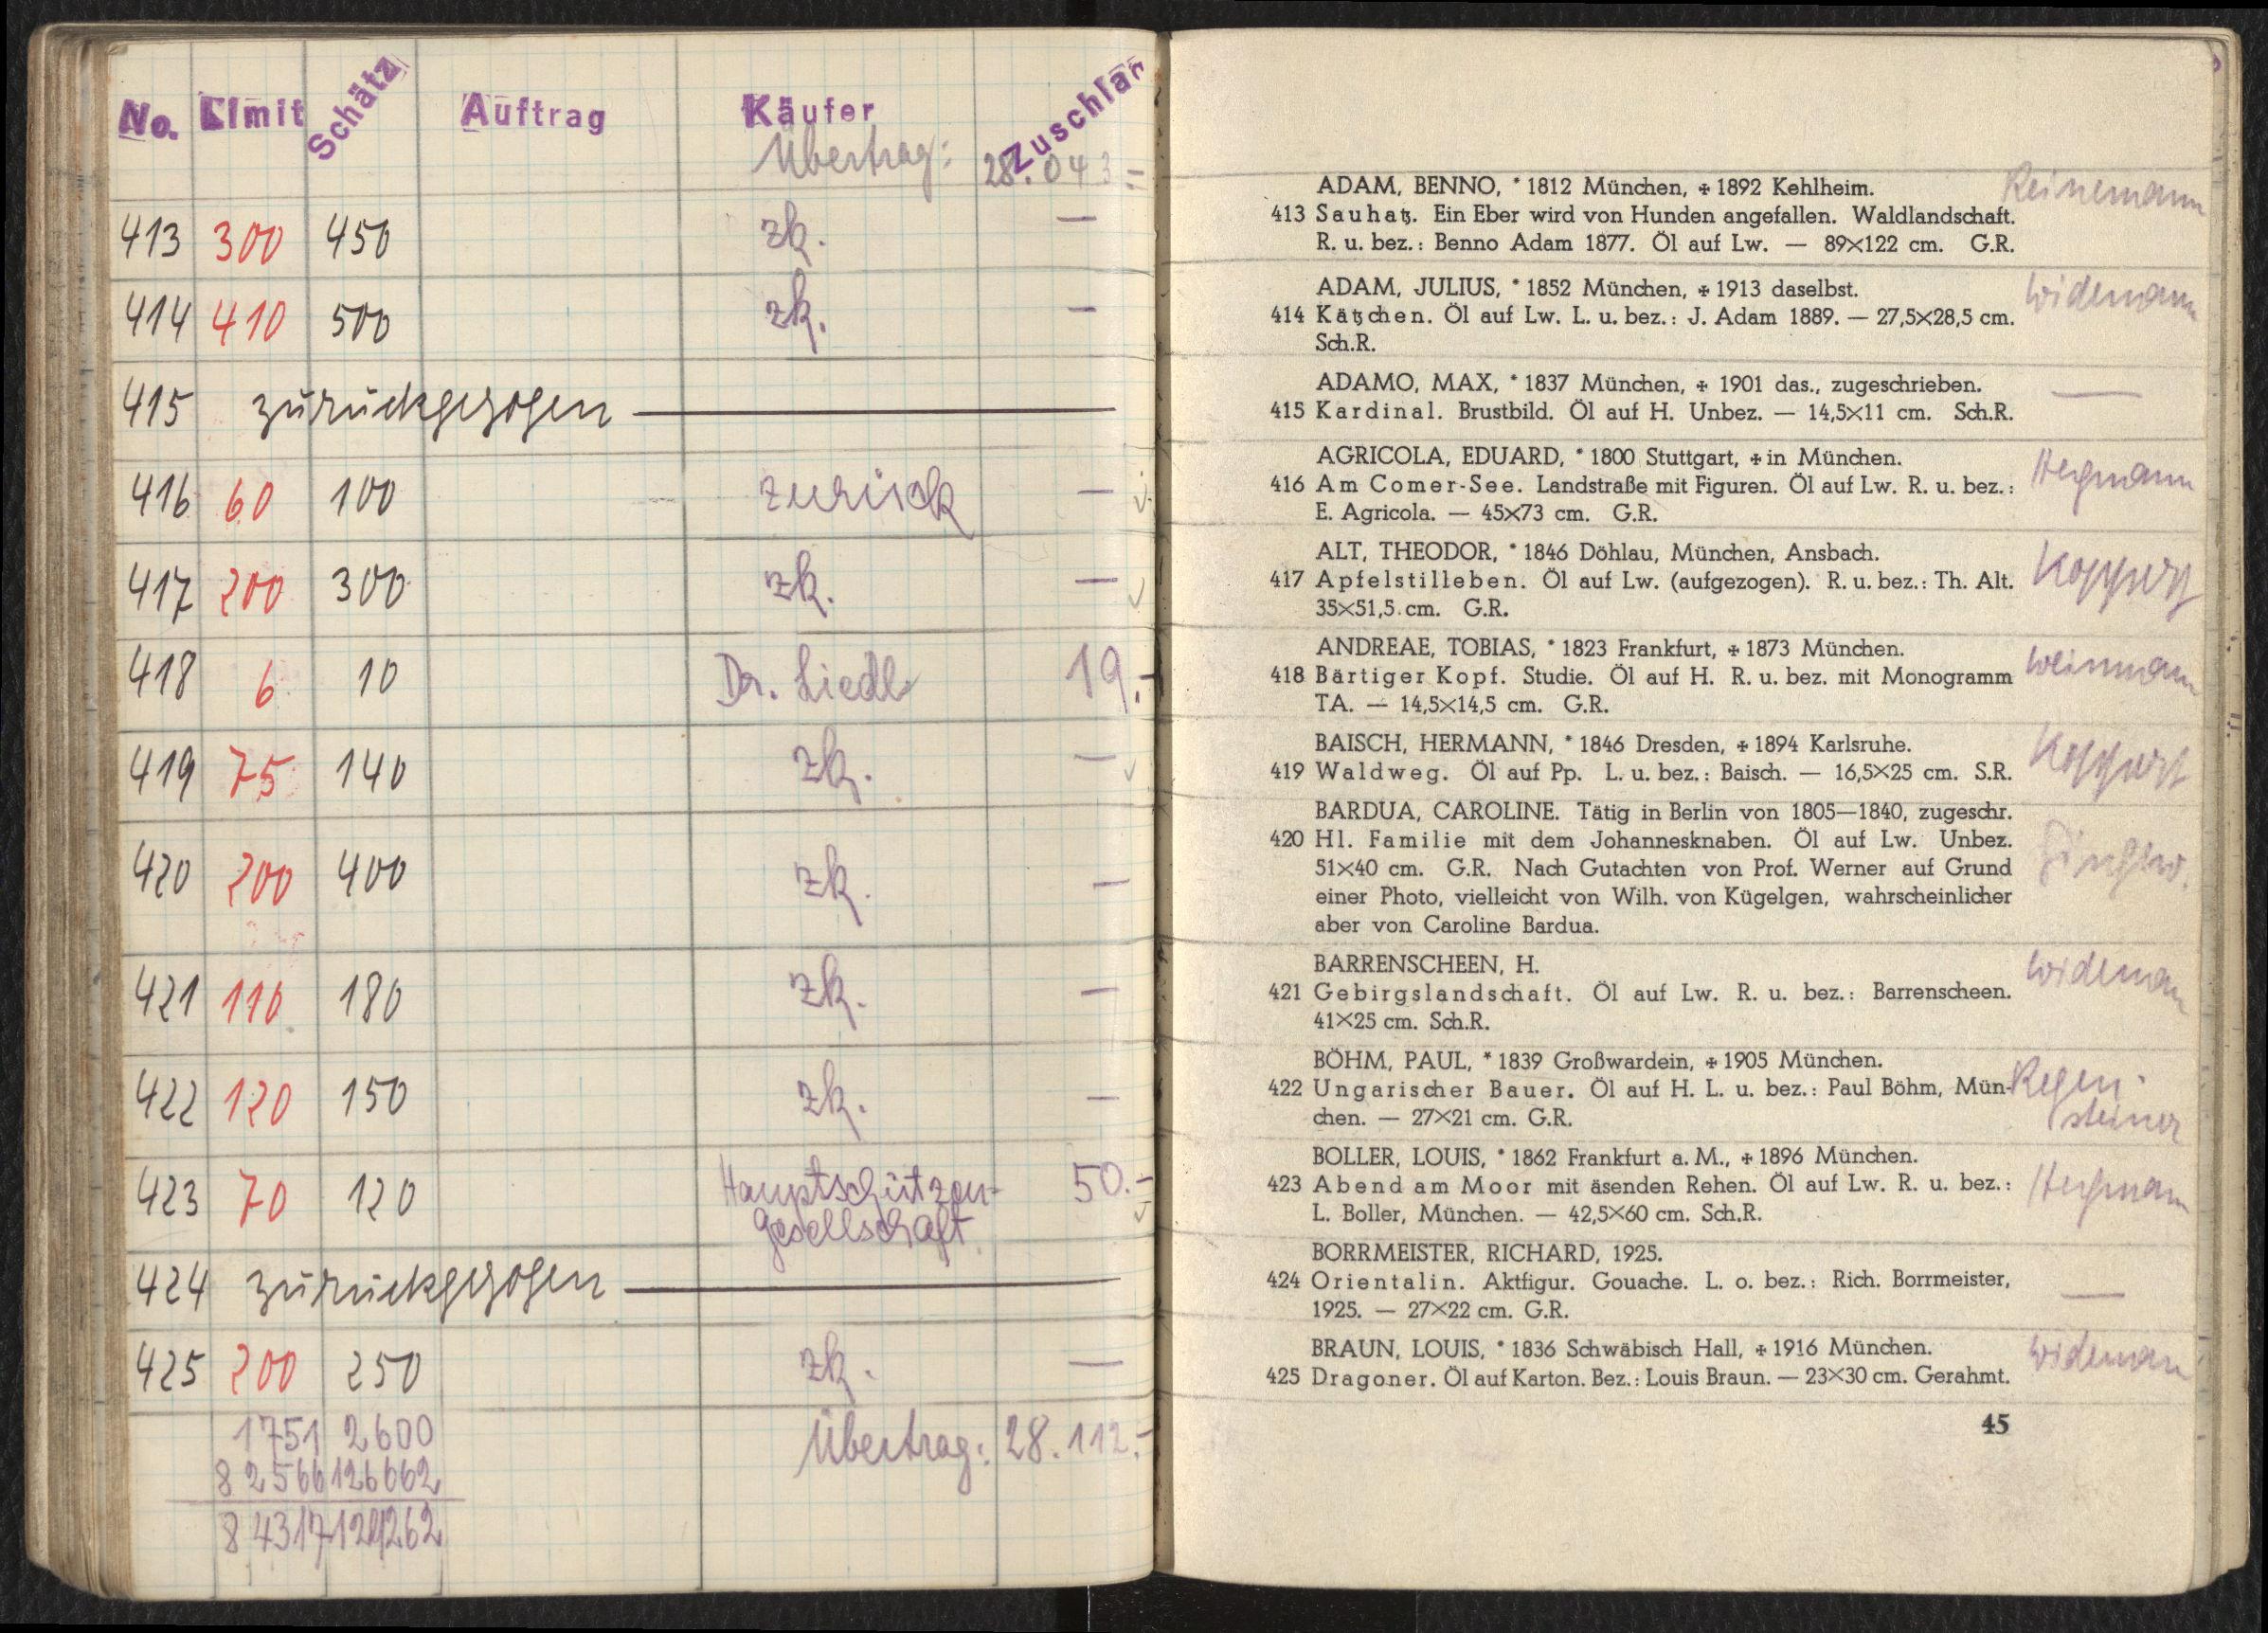 No. Limit Schätz Auftrag Käufer Zuschlag
Übertrag: 28.043.-
413 300 450 zk. —
414 410 500 zk. —
415 zurückgezogen —
416 60 100 zurück —
417 200 300 zk. —
418 6 10 Dr. Liedl 19.-
419 75 140 zk. —
420 200 400 zk. —
421 110 180 zk. —
422 120 150 zk. —
423 70 120 Hauptschützen- 50.-
gesellschaft
424 zurückgezogen —
425 200 250 zk. —
1751 2600 Übertrag: 28.112.-
82566 126662
84317 129262
ADAM, BENNO, * 1812 München, ✠ 1892 Kehlheim. Reinemann
413 Sauhatz. Ein Eber wird von Hunden angefallen. Waldlandschaft.
R. u. bez.: Benno Adam 1877. Öl auf Lw. — 89×122 cm. G.R.
ADAM, JULIUS, * 1852 München, ✠ 1913 daselbst. Widemann
414 Kätzchen. Öl auf Lw. L. u. bez.: J. Adam 1889. — 27,5×28,5 cm.
Sch.R.
ADAMO, MAX, * 1837 München, ✠ 1901 das., zugeschrieben. —
415 Kardinal. Brustbild. Öl auf H. Unbez. — 14,5×11 cm. Sch.R.
AGRICOLA, EDUARD, * 1800 Stuttgart, ✠ in München.
416 Am Comer-See. Landstraße mit Figuren. Öl auf Lw. R. u. bez.:
E. Agricola. — 45×73 cm. G.R.
ALT, THEODOR, * 1846 Döhlau, München, Ansbach.
417 Apfelstilleben. Öl auf Lw. (aufgezogen). R. u. bez.: Th. Alt.
35×51,5 cm. G.R.
ANDREAE, TOBIAS, * 1823 Frankfurt, ✠ 1873 München. Weinmann
418 Bärtiger Kopf. Studie. Öl auf H. R. u. bez. mit Monogramm
TA. — 14,5×14,5 cm. G.R.
BAISCH, HERMANN, * 1846 Dresden, ✠ 1894 Karlsruhe.
419 Waldweg. Öl auf Pp. L. u. bez.: Baisch. — 16,5×25 cm. S.R.
BARDUA, CAROLINE. Tätig in Berlin von 1805—1840, zugeschr.
420 Hl. Familie mit dem Johannesknaben. Öl auf Lw. Unbez.
51×40 cm. G.R. Nach Gutachten von Prof. Werner auf Grund
einer Photo, vielleicht von Wilh. von Kügelgen, wahrscheinlicher
aber von Caroline Bardua.
BARRENSCHEEN, H. Widemann
421 Gebirgslandschaft. Öl auf Lw. R. u. bez.: Barrenscheen.
41×25 cm. Sch.R.
BÖHM, PAUL, * 1839 Großwardein, ✠ 1905 München.
422 Ungarischer Bauer. Öl auf H. L. u. bez.: Paul Böhm, Mün- Regen-
chen. — 27×21 cm. G.R. steiner
BOLLER, LOUIS, * 1862 Frankfurt a. M., ✠ 1896 München.
423 Abend am Moor mit äsenden Rehen. Öl auf Lw. R. u. bez.:
L. Boller, München. — 42,5×60 cm. Sch.R.
BORRMEISTER, RICHARD, 1925.
424 Orientalin. Aktfigur. Gouache. L. o. bez.: Rich. Borrmeister, —
1925. — 27×22 cm. G.R.
BRAUN, LOUIS, * 1836 Schwäbisch Hall, ✠ 1916 München. Widemann
425 Dragoner. Öl auf Karton. Bez.: Louis Braun. — 23×30 cm. Gerahmt.
45